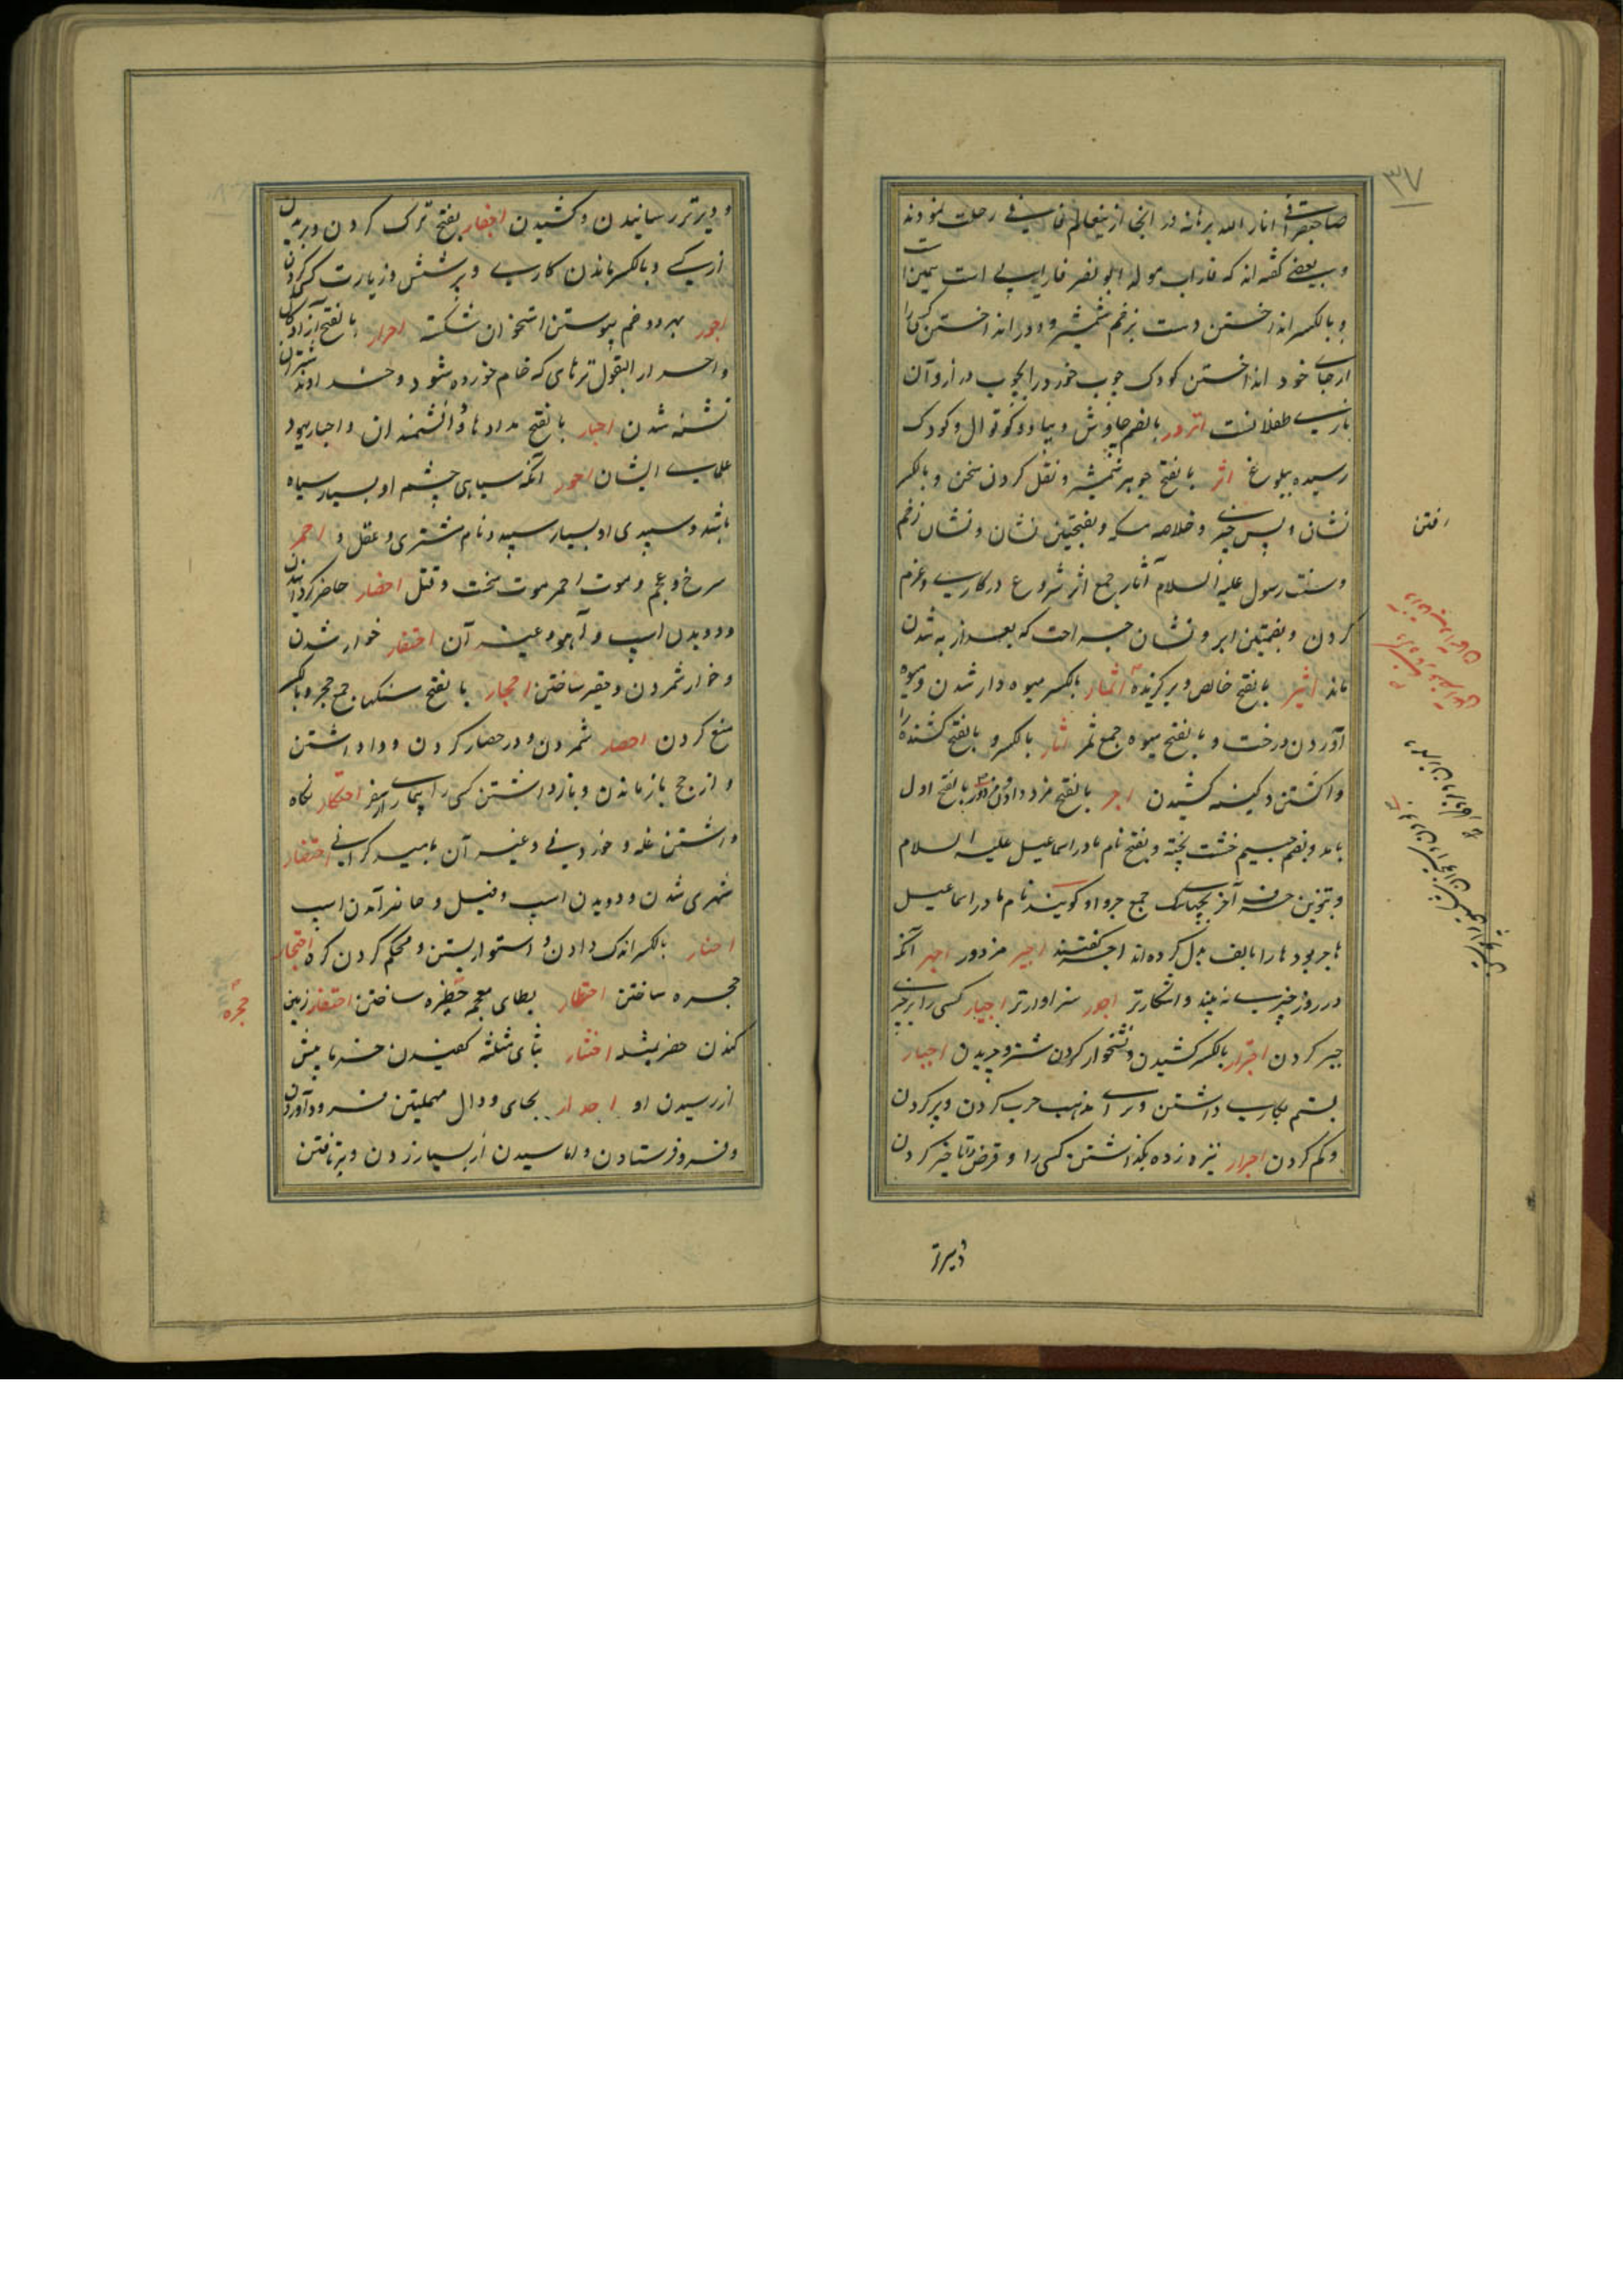 ۳۷
صاحبقرانی انار الله برهانه در آنجا ازینعالم فانی رحلت نمودند
و بعضی گفته اند که فاراب مولد ابو نصر فارابی است
و بالکسر انداختن دست بزخم شمشیر و دور انداختن کسی را
از جای خود انداختن کودک چوب خورد را بچوب دراز و آن
بازی طفلانست اترور بالضم چاوش و پیاده کوتوال و کودک
رسیده ببلوغ اثر بالفتح جوهر شمشیر و نقل کردن سخن و بالکسر
نشان و پس چیزی و خلاصه و بفتحتین نشان و نشان زخم
و سنت رسول علیه السلام آثار جمع اثر شروع در کاری و عزم
کردن و بضمتین ابر و نشان جراحت که بعد از به شدن
ماند اثیر بالفتح خالص و برگزیده اثمار بالکسر میوه دار شدن و میوه
آوردن درخت و بالفتح میوه جمع ثمر اثار بالکسر و بالفتح کشنده را
واکشتن و کینه کشیدن اجر بالفتح مزد دادن و مزدور بالفتح اول
بامد و بضم جیم خشت پخته و بفتح نام مادر اسماعیل علیه السلام
و بتنوین حرف آخر بچهای سگ جمع جرو او گویند نام مادر اسماعیل
هاجر بود ها را بالف بدل کرده اند اجر گفتند اجیر مزدور اجهر آنکه
در روز چیزی نه بیند و آشکارتر اجدر سزاوارتر اجبار کسی را بر چیزی
جبر کردن اجترار بالکسر کشیدن و نشخوار کردن شتر و چریدن اجبار
بستم بکاری داشتن و برای مذهب حرب کردن و پر کردن
و کم کردن اجرار نیزه زده بگذاشتن کسی را و قرض را تاخیر کردن
رفتن
دیرتر
و دیرتر رسانیدن و کشیدن اجفار بفتح ترک کردن و بریدن
از کسی و بالکسر ماندن کاری و پرستش و زیارت کسی کردن
اجور بهر دو ضم پیوستن استخوان شکسته احرار بالفتح آزادگان
و احرار البقول ترهای که خام خورده شود و خداوند شتران
تشنه شدن احبار بالفتح مدادها و دانشمندان و احبار یهود
علمای ایشان احور آنکه سیاهی چشم او بسیار سیاه
باشد و سپیدی او بسیار سپید و نام مشتری و عقل و احمر
سرخ و عجم و موت احمر موت سخت و قتل احضار حاضر گردانیدن
و دویدن اسپ و آهو و غیر آن احتقار خوار شدن
و خوار شمردن و حقیر ساختن احجار بالفتح سنگها جمع حجر و بالکسر
منع کردن احصار شمردن و در حصار کردن و وا داشتن
و از حج باز ماندن و باز داشتن کسی را بیماری از سفر احتکار نگاه
داشتن غله و خوردنی و غیر آن بامید گرانی احتضار
شهری شدن و دویدن اسب و فیل و حاضر آمدن اسب
احتار بالکسر اندک دادن و استوار بستن و محکم کردن گره احتجار
حجره ساختن احتظار بظای معجم حظیره ساختن احتفار زمین
کندن حفر مثله اختثار بثای مثلثه
از رسیدن او احدار بحای و دال مهملتین فرود آوردن
و فرو فرستادن و اماسیدن از بسیار زدن و برتافتن
حجره